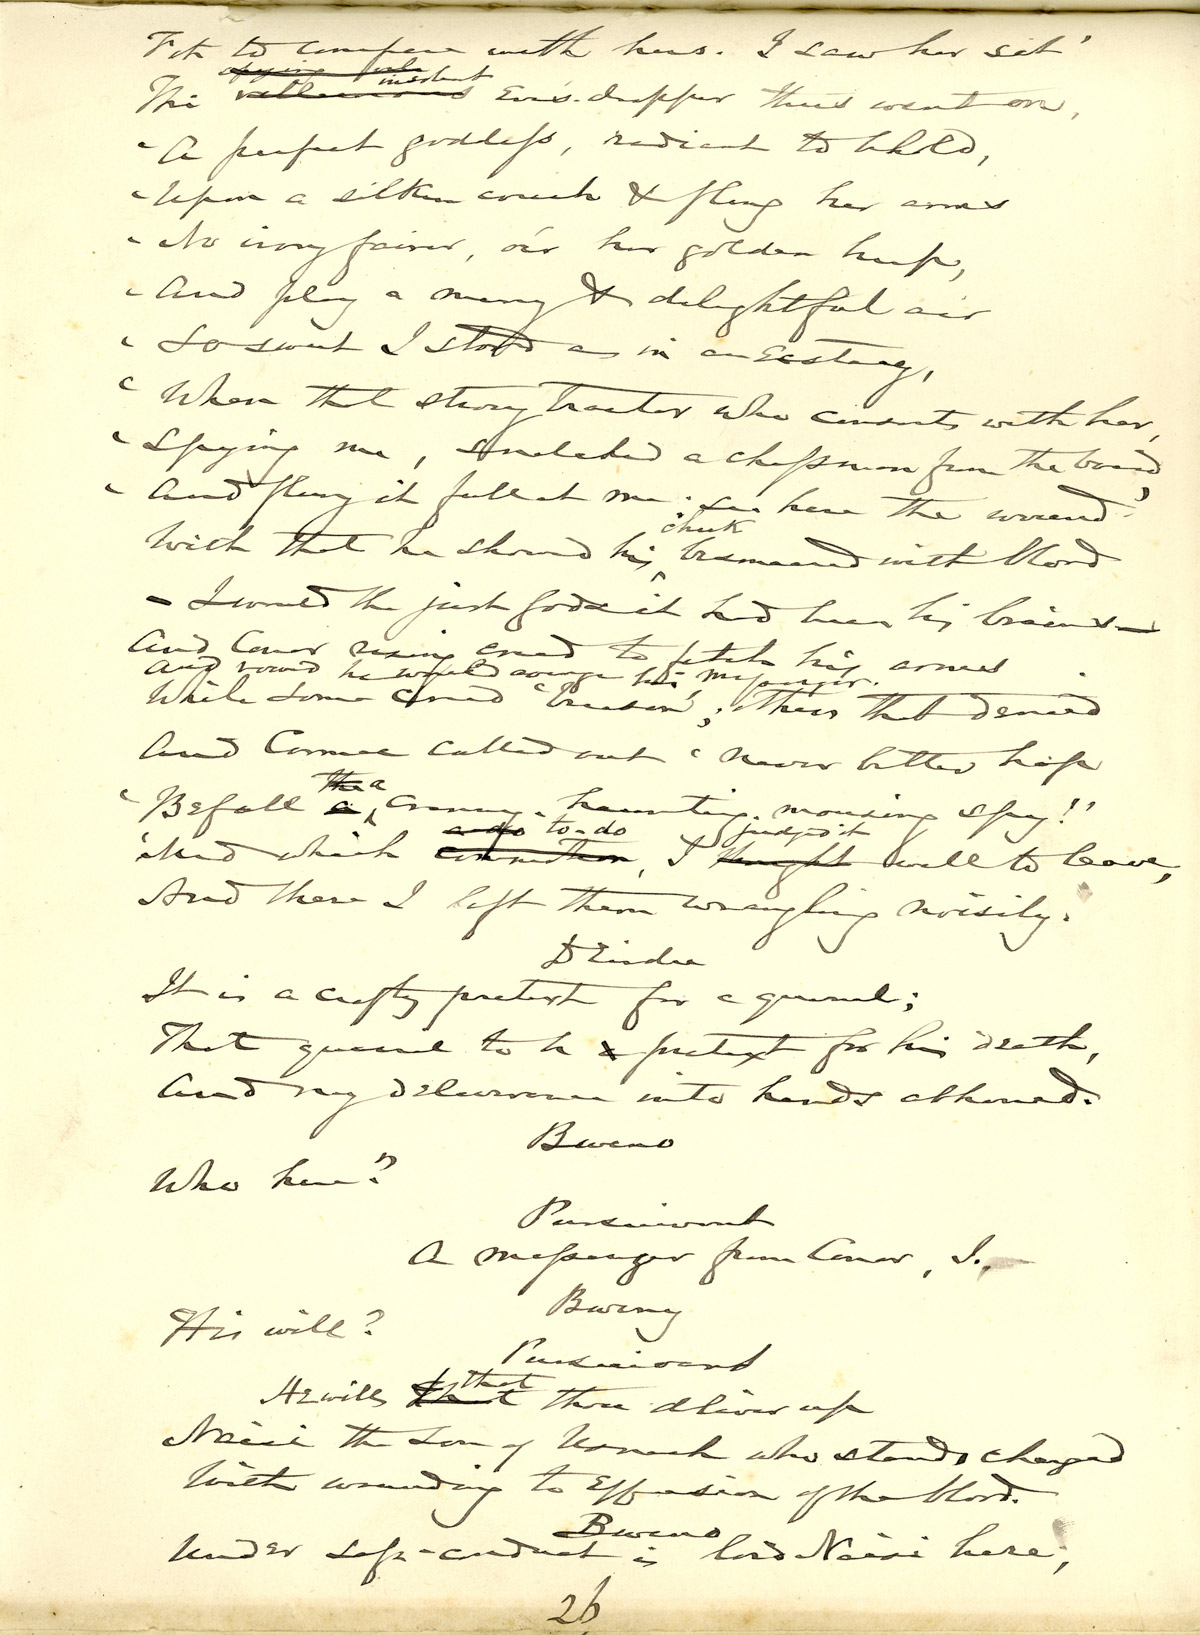 Fit to compare with hers. I saw her sit'
spying
The villainous insolent Eves-dropper thus went on,
'A perfect goddess, radiant to behold,
'Upon a silken couch & fling her arms
'No ivory fairer, o'er her golden harp,
'And play a merry & delightful air
'So sweet I stood as in an Ecstacy,
'When that strong traitor who consorts with her,
'Spying me, snatched a chessman from the board,
'And flung it full at me: see here the wound'
cheek
With that he showed his besmeared with blood
- I would the just gods it had been his brains -
And Conor rising cried to fetch his arms
And vowed he would avenge his messenger.
While some cried 'treason'; others that denied
And Cormac called out 'never better hap
the a
'Befall a cranny-haunting mousing spy!'
ado to-do judged it
'Mid which commotion, I thought well to leave,
And there I left them wrangling noisily.
Deirdre
It is a crafty pretext for a quarrel;
That quarrel to be a pretext for his death,
And my deliverance into hands abhorred.
Bweeno
Who here?
Pursuivant
A messenger from Conor, I.
Bweeny
His will?
Pursuivant
that
He wills that thou deliver up
Naisi the son of Usnach who stands charged
With wounding to Effusion of the blood.
Bweeno
Under safe-conduct is lord Naisi here;
26